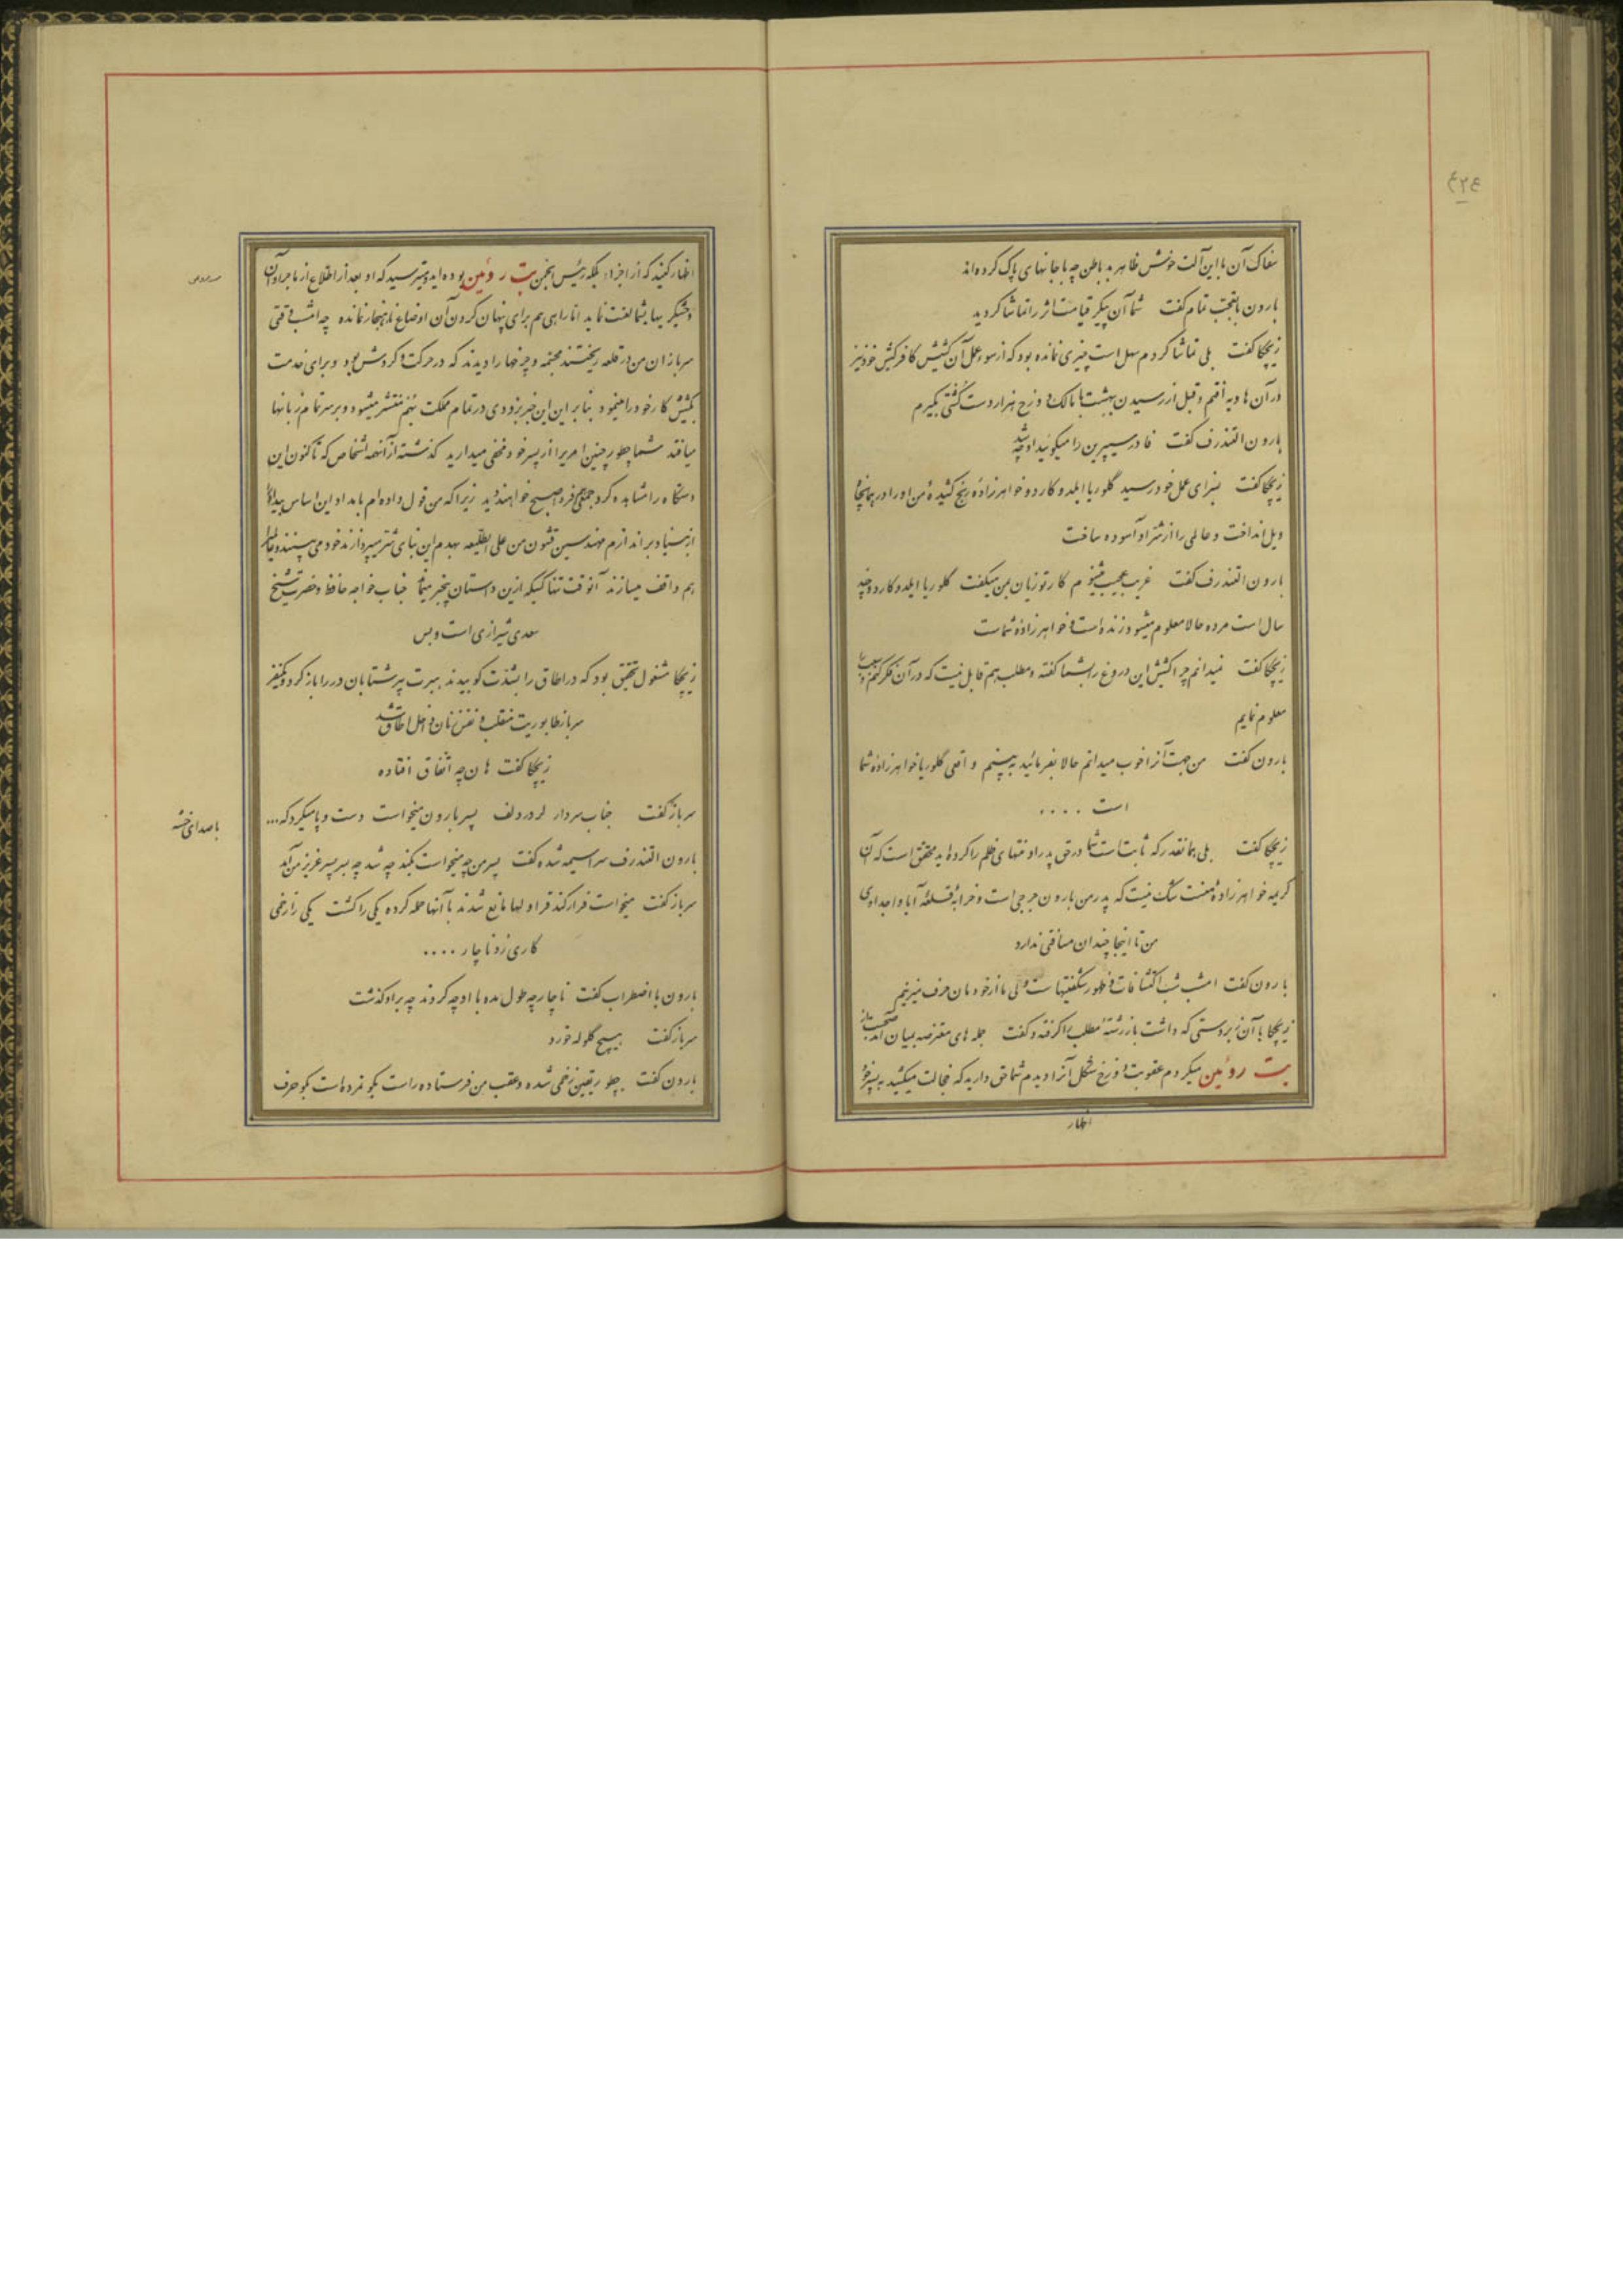 ۴۲۴
سفاک آن با این آلت خوش ظاهر بد باطن چه با جانهای پاک کرده‌اند
بارون با تعجب تمام گفت شما آن پیکر قیامت اثر را تماشا کردید
زیچکا گفت بلی تماشا کردم سهل است چیزی نمانده بود که از سوء عمل آن کشیش کافر کیش خود نیز
در آن هاویه افتم و قبل از رسیدن بهشت با مالک دوزخ هزار دست کشتی بگیرم
بارون التندرف گفت فادر سیپرین را میگوئید او چه شد
زیچکا گفت بسزای عمل خود رسید گلوریا ایلدوکار دو خواهرزاده رنج کشیده من او را در همانجا
ویل انداخت و عالمی را از شر او آسوده ساخت
بارون التندرف گفت غریب عجیب میشنوم کارتوزیان بمن میگفت گلوریا ایلدوکاردو چند
سال است مرده حالا معلوم میشود زنده است و خواهرزاده شماست
زیچکا گفت نمیدانم چرا کشیش این دروغ را بشما گفته و مطلب هم قابل نیست که در آن فکر کنم و
معلوم نمایم
بارون گفت من جهت آنرا خوب میدانم حالا بفرمائید ببینم واقعی گلوریا خواهرزاده شما
است ....
زیچکا گفت بلی بهمانقدر که ثابت است شما در حق پدر او منتهای ظلم را کرده‌اید محقق است که آن
کریمه خواهرزاده منست شک نیست که پدر من بارون جرجی است و خرابه قلعه آبا و اجدادی
من تا اینجا چندان مسافتی ندارد
بارون گفت امشب شب اکتشافات و ظهور شگفتیهاست ولی ما از خودمان حرف میزنیم
زیچکا با آن زبردستی که داشت باز رشته مطلب را گرفته و گفت جمله های معترضه بمیان آمد صحبت از
بت روئین میکردم عقوبت دوزخ شکل آنرا دیدم شما حق دارید که خجالت میکشید به پسر خود
اظهار
اظهار کنید که از اجزاء بلکه رئیس انجمن بت روئین بوده‌اید و میترسید که او بعد از اطلاع از ماجرا و آن
وحشیگریها بشما لعنت نماید اما راهی هم برای پنهان کردن آن اوضاع ناهنجار نمانده چه امشب وقتی
سربازان من در قلعه ریختند مجسمه و چرخها را دیدند که در حرکت و گردش بود و برای خدمت
کشیش کار خود را مینمود بنابراین این خبر بزودی در تمام مملکت بهم منتشر میشود و بر سر تمام زبانها
میافتد شما چطور چنین امری را از پسر خود مخفی میدارید گذشته از آنهمه اشخاص که تاکنون این
دستگاه را مشاهده کرد جمعی هم فردا صبح خواهند دید زیرا که من قول داده‌ام بامداد این اساس بیداد را
از بنیاد براندازم مهندسین قشون من علی الطلیعه بهدم این بنای شر میپردازند خود می بینند و عالمی را
هم واقف میسازند آنوقت تنها کسیکه ازین داستان بیخبر میماند جناب خواجه حافظ و حضرت شیخ
سعدی شیرازی است و بس
زیچکا مشغول تحقیق بود که در اطاق را بشدت کوبیدند ببرت پیر شتابان در را باز کرد و یکنفر
سرباز طابوریت منقلب و نفس زنان داخل اطاق شد
زیچکا گفت هان چه اتفاق افتاده
سرباز گفت جناب سردار لرد ردلف پسر بارون میخواست دست و پا میکرد که...
با صدای خسته
بارون التندرف سراسیمه شده گفت پسر من چه میخواست بکند چه شد چه بسر پسر عزیز من آمد
سرباز گفت میخواست فرار کند قراولها مانع شدند با آنها حمله کرده یکی را کشت یکی را زخمی
کاری زد ناچار ....
بارون با اضطراب گفت ناچار چه طول مده با او چه کردند چه بر او گذشت
سرباز گفت هیچ گلوله خورد
بارون گفت چطور یقین زخمی شده و عقب من فرستاده راست بگو نمرده است بگو حرف